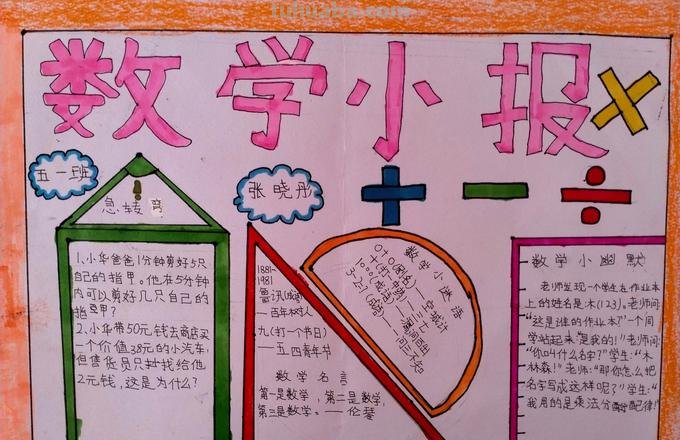 数学小报
五一班
张晓丹
急转弯
1、小华爸爸1分钟剪好5只
自己的指甲。他在5分钟
内可以剪好几只自己的
指甲?
2、小华带50元钱去商店买
一个价值38元的小汽车,
但售货员只找给他
2元钱,这是为什么?
1881~
1981
鲁迅(成语)
— 百年树人
九(打一个节日)
— 五四青年节
数学名言
第一是数学,第二是数学,
第三是数学。— 伦琴
数学小谜语
0+0
—空城计
3-2-1
数学小幽默
老师发现一个学生在作业本
上的姓名是:木(1 2 3)。老师问:
“这是谁的作业本?”一个同
学站起来“是我的!”老师问:
“你叫什么名字?”学生:“木
林森!”老师:“那你怎么把
名字写成这样呢?”学生:“
我用的是乘法分配律!